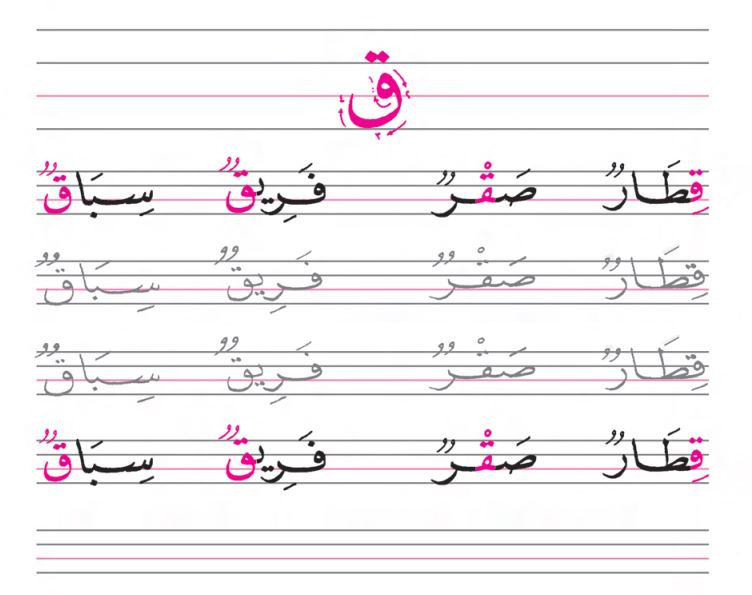 ق
قِطَارٌ صَقْرٌ فَرِيقٌ سِبَاقٌ
قِطَارٌ صَقْرٌ فَرِيقٌ سِبَاقٌ
قِطَارٌ صَقْرٌ فَرِيقٌ سِبَاقٌ
قِطَارٌ صَقْرٌ فَرِيقٌ سِبَاقٌ